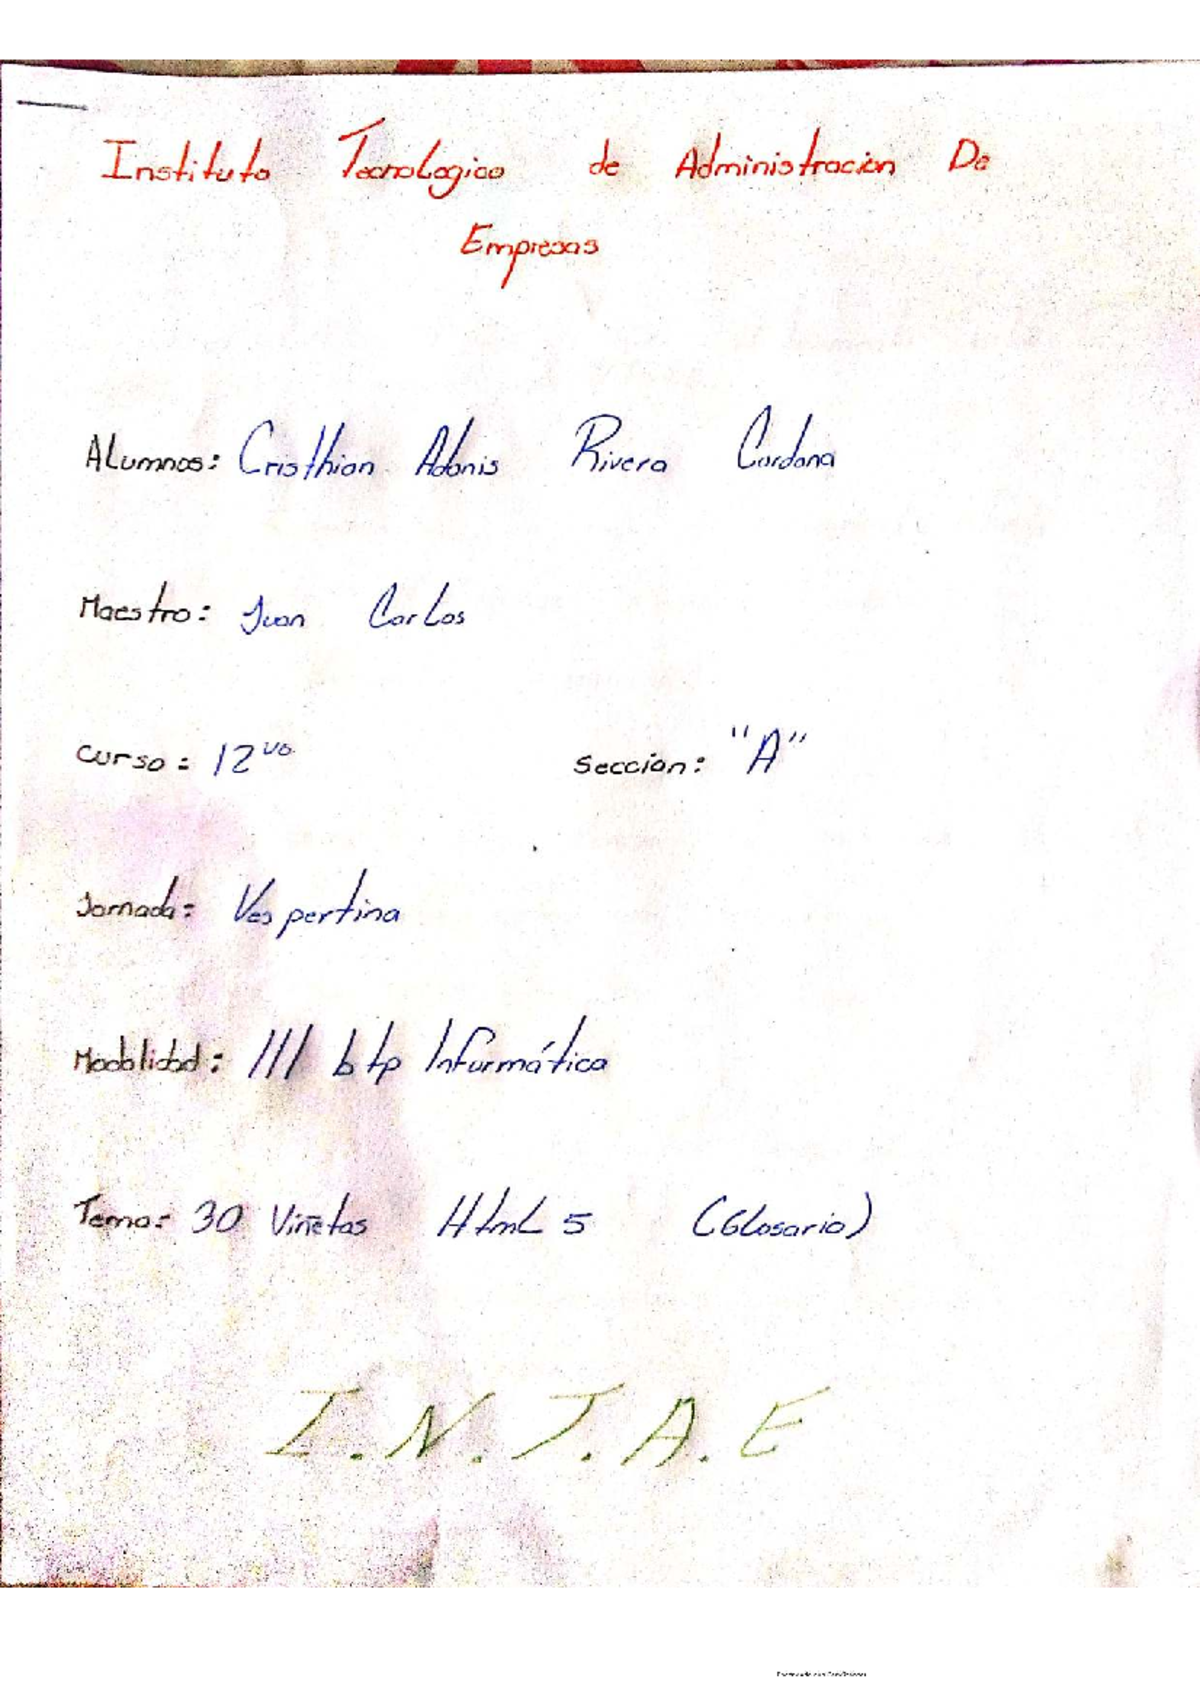 Instituto Tecnologico de Administracion De
Empresas
Alumnos: Cristhian Adonis Rivera Cardona
Maestro: Juan Carlos
Curso: 12vo
Seccion: "A"
Jornada: Vespertina
Modalidad: III btp Informática
Tema: 30 Viñetas HtmL 5 (Glosario)
I.N.T.A.E